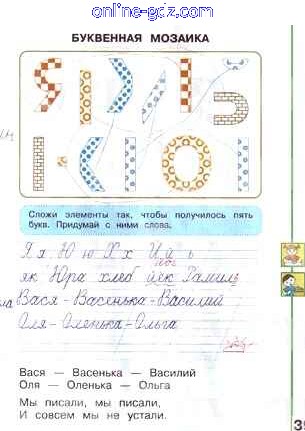 online-gdz.com
БУКВЕННАЯ МОЗАИКА
Сложи элементы так, чтобы получилось пять
букв. Придумай с ними слова.
Я я Ю ю Х х Й й ь
як Юра хлеб Рамиль
Вася - Васенька - Василий
Оля - Оленька - Ольга
Вася — Васенька — Василий
Оля — Оленька — Ольга
Мы писали, мы писали,
И совсем мы не устали.